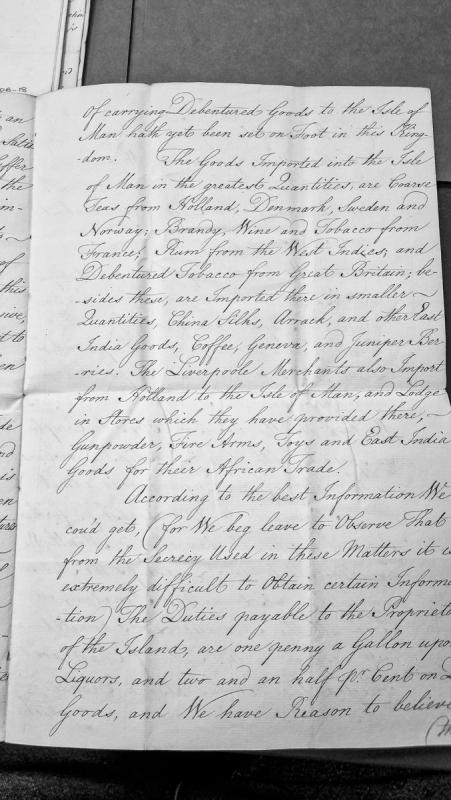 of carrying Debentured Goods to the Isle of
Man hath yet been set on Foot in this King-
-dom. The Goods Imported into the Isle
of Man in the greatest Quantities, are Coarse
Teas from Holland, Denmark, Sweden and
Norway; Brandy, Wine and Tobacco from
France; Rum from the West Indies; and
Debentured Tobacco from Great Britain; be-
-sides these, are Imported there in smaller
Quantities, China Silks, Arrack, and other East
India Goods, Coffee, Geneva, and Juniper Ber-
-ries. The Liverpoole Merchants also Import
from Holland to the Isle of Man, and Lodge
in Stores which they have provided there,
Gunpowder, Fire Arms, Toys and East India
Goods for their African Trade.
According to the best Information We
cou'd get, (for We beg leave to Observe That
from the Secrecy Used in these Matters it is
extremely difficult to Obtain certain Informa
-tion) The Duties payable to the Proprieto
of the Island, are one penny a Gallon upo
Liquors, and two and an half p.r Cent on
Goods, and We have Reason to believe